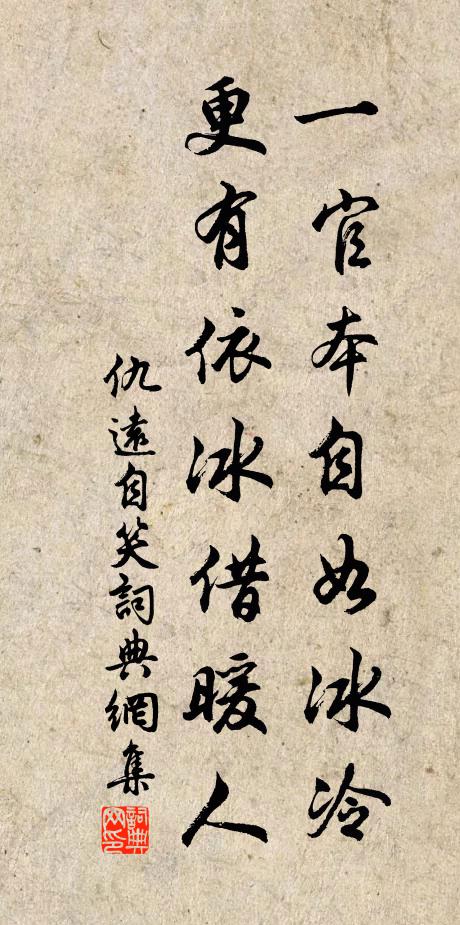 一官本自如冰冷
更有依冰借暖人
仇遠自笑詞典網集
詞典网印